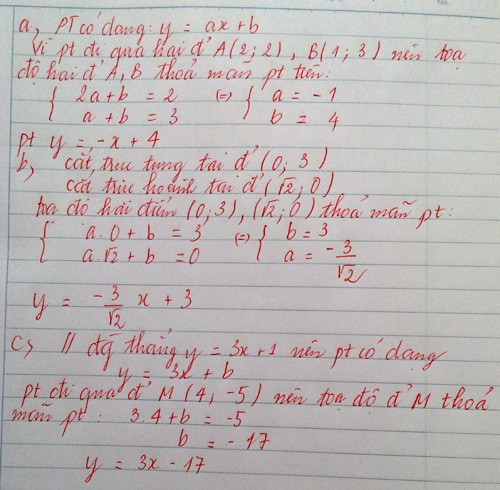 a, PT có dạng: y = ax + b
Vì pt đi qua hai đ' A(2; 2), B(1; 3) nên toạ
độ hai đ' A, B thoả mãn pt trên:
{ 2a + b = 2 (=) { a = -1
a + b = 3 b = 4
pt y = -x + 4
b, cắt trục tung tại đ' (0; 3)
cắt trục hoành tại đ' (√2; 0)
toạ độ hai điểm (0; 3), (√2; 0) thoả mãn pt:
{ a.0 + b = 3 (=) { b = 3
a.√2 + b = 0 a = -3/√2
y = -3/√2 x + 3
c, // đg thẳng y = 3x + 1 nên pt có dạng
y = 3x + b
pt đi qua đ' M (4; -5) nên toạ độ đ' M thoả
mãn pt: 3.4 + b = -5
b = -17
y = 3x - 17